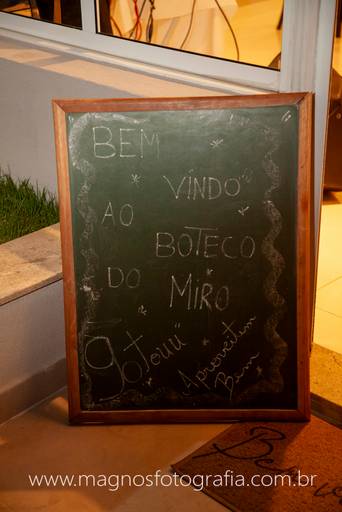 BEM
VINDO
AO
BOTECO
DO
MIRO
Aproveitem
Bem
www.magnosfotografia.com.br